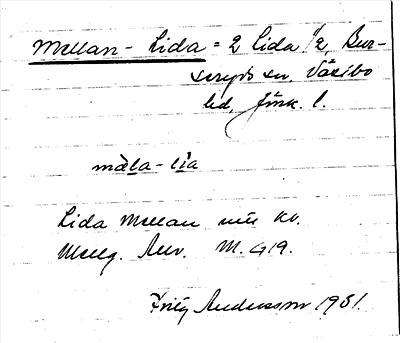 Mellan-Lida = 2 Lida 1/2, Bur-
seryds sn, Västbo
hd, Jönk. l.
mäla-lia
Lida Mellan
Uellg. Anv. M. 419.
Fritz Andersson 1931.